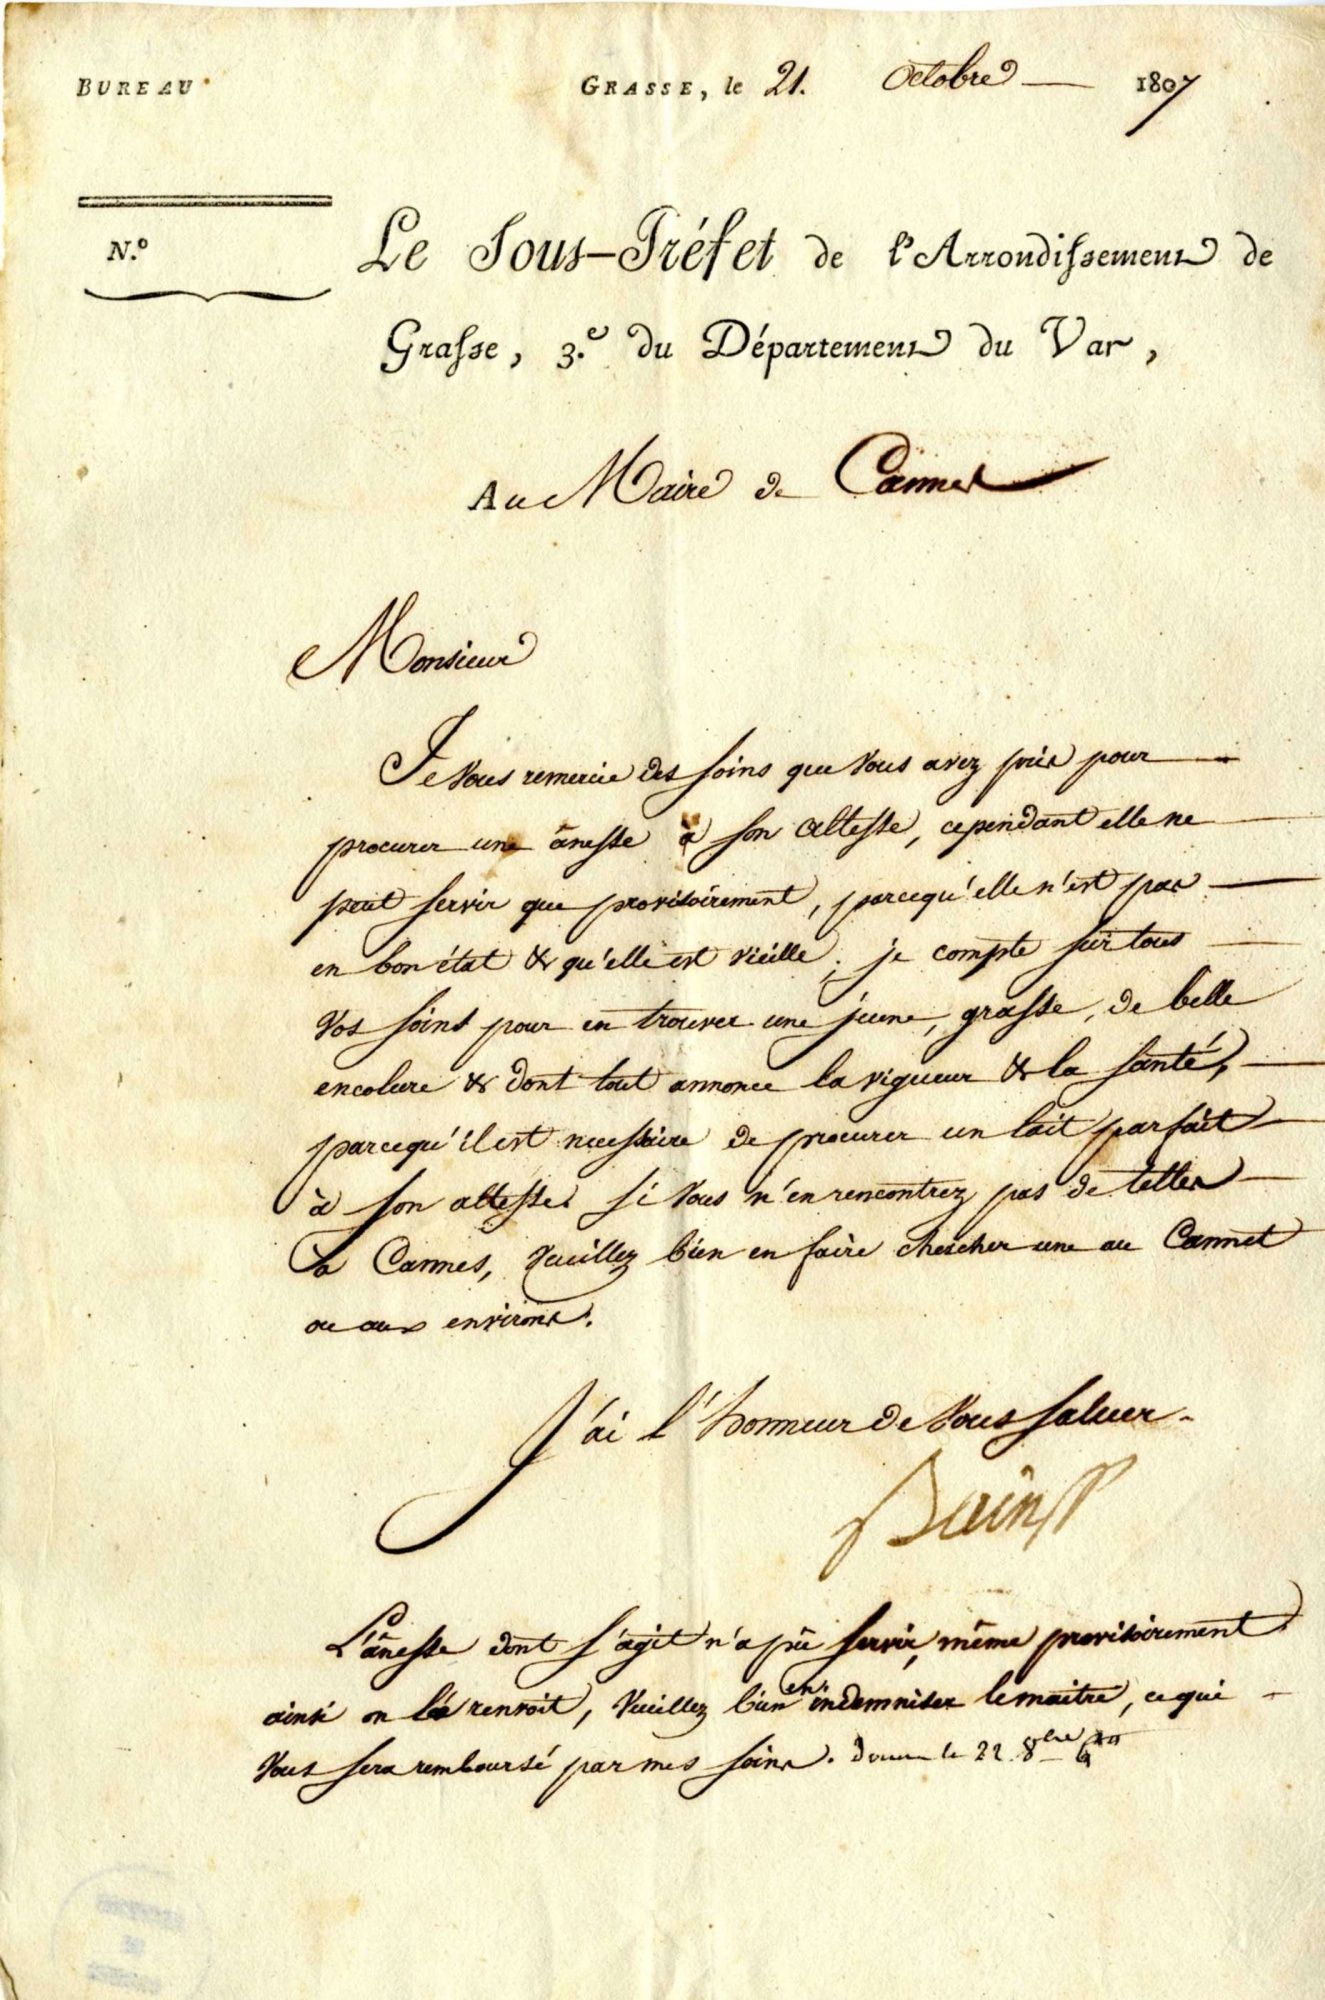 BUREAU
GRASSE, le 21. Octobre 1807
N.º
Le Sous-Préfet de l'Arrondissement de
Grasse, 3.e du Département du Var,
Au Maire de Cannes
Monsieur
Je vous remercie des soins que vous avez pris pour
procurer une ânesse à son altesse, cependant elle ne
peut servir que provisoirement, parcequ'elle n'est pas
en bon état & qu'elle est vieille; je compte sur tous
vos soins pour en trouver une jeune, grasse, de belle
encolure & dont tout annonce la vigueur & la santé,
parcequ'il est necessaire de procurer un lait parfait
à son altesse. si vous n'en rencontrez pas de telles
à Cannes, veuillez bien en faire chercher une au Cannet
ou aux environs.
J'ai l'honneur de vous saluer.
L'ânesse dont s'agit n'a pû servir, même provisoirement
ainsi on la renvoit, veuillez bien en indemniser le maitre, ce qui
vous sera remboursé par mes soins. le 22 8bre